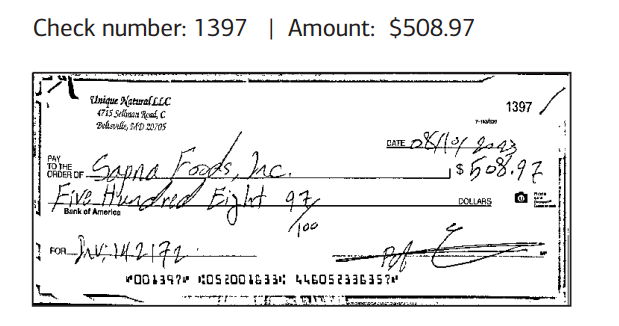 Check number: 1397 | Amount: $508.97
Unique Natural LLC
4715 Sellman Road, C
Beltsville, MD 20705
1397
DATE 08/10/2023
PAY TO THE ORDER OF Sapna Foods, Inc. $508.97
Five Hundred Eight 97/100 DOLLARS
Bank of America
FOR Inv: 142172
⑈001397⑈ ⑆052001633⑆ 446052336357⑈